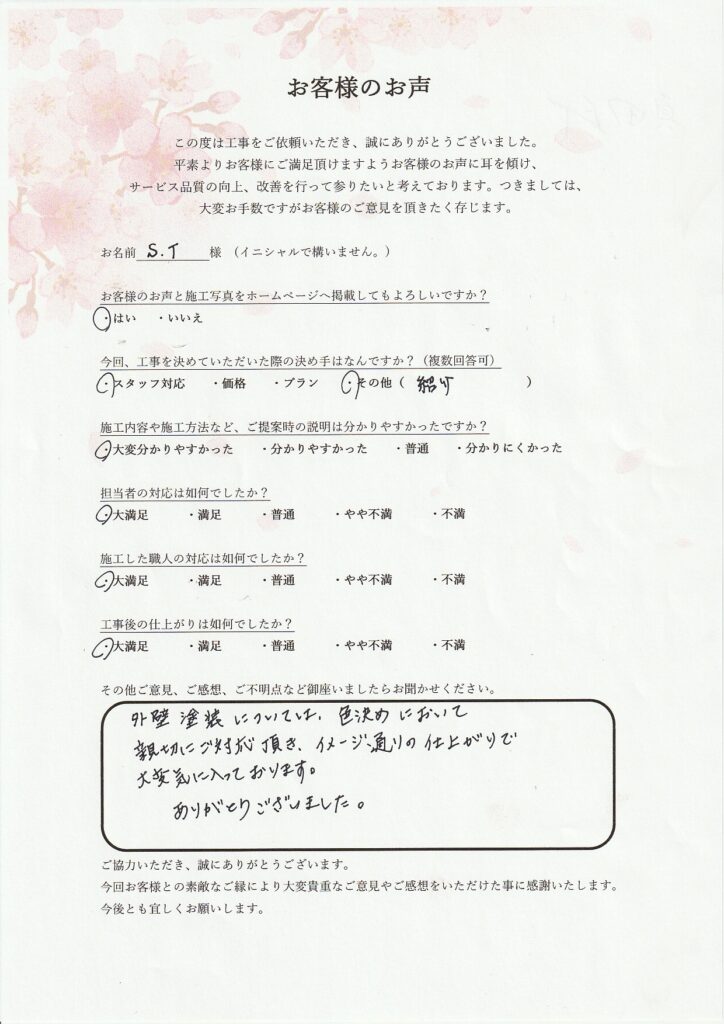 お客様のお声
この度は工事をご依頼いただき、誠にありがとうございました。
平素よりお客様にご満足頂けますようお客様のお声に耳を傾け、
サービス品質の向上、改善を行って参りたいと考えております。つきましては、
大変お手数ですがお客様のご意見を頂きたく存じます。
お名前 S.T 様 （イニシャルで構いません。）
お客様のお声と施工写真をホームページへ掲載してもよろしいですか？
・はい ・いいえ
今回、工事を決めていただいた際の決め手はなんですか？（複数回答可）
・スタッフ対応 ・価格 ・プラン ・その他（ 紹介 ）
施工内容や施工方法など、ご提案時の説明は分かりやすかったですか？
・大変分かりやすかった ・分かりやすかった ・普通 ・分かりにくかった
担当者の対応は如何でしたか？
・大満足 ・満足 ・普通 ・やや不満 ・不満
施工した職人の対応は如何でしたか？
・大満足 ・満足 ・普通 ・やや不満 ・不満
工事後の仕上がりは如何でしたか？
・大満足 ・満足 ・普通 ・やや不満 ・不満
その他ご意見、ご感想、ご不明点など御座いましたらお聞かせください。
外壁塗装については、色決めにおいて
親切にご対応頂き、イメージ通りの仕上がりで
大変気に入っております。
ありがとうございました。
ご協力いただき、誠にありがとうございます。
今回お客様との素敵なご縁により大変貴重なご意見やご感想をいただけた事に感謝いたします。
今後とも宜しくお願いします。